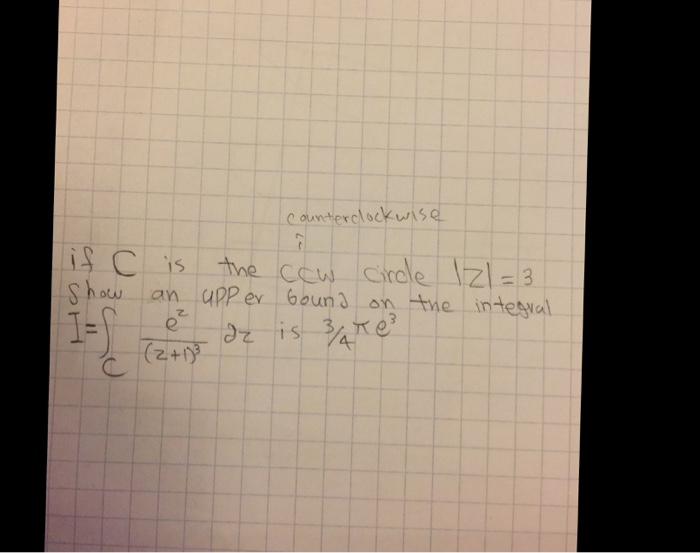 counterclockwise
if C is the ccw circle |z| = 3
Show an upper bound on the integral
I = ∫_C e^z / (z+1)^3 ∂z is 3/4 π e^3